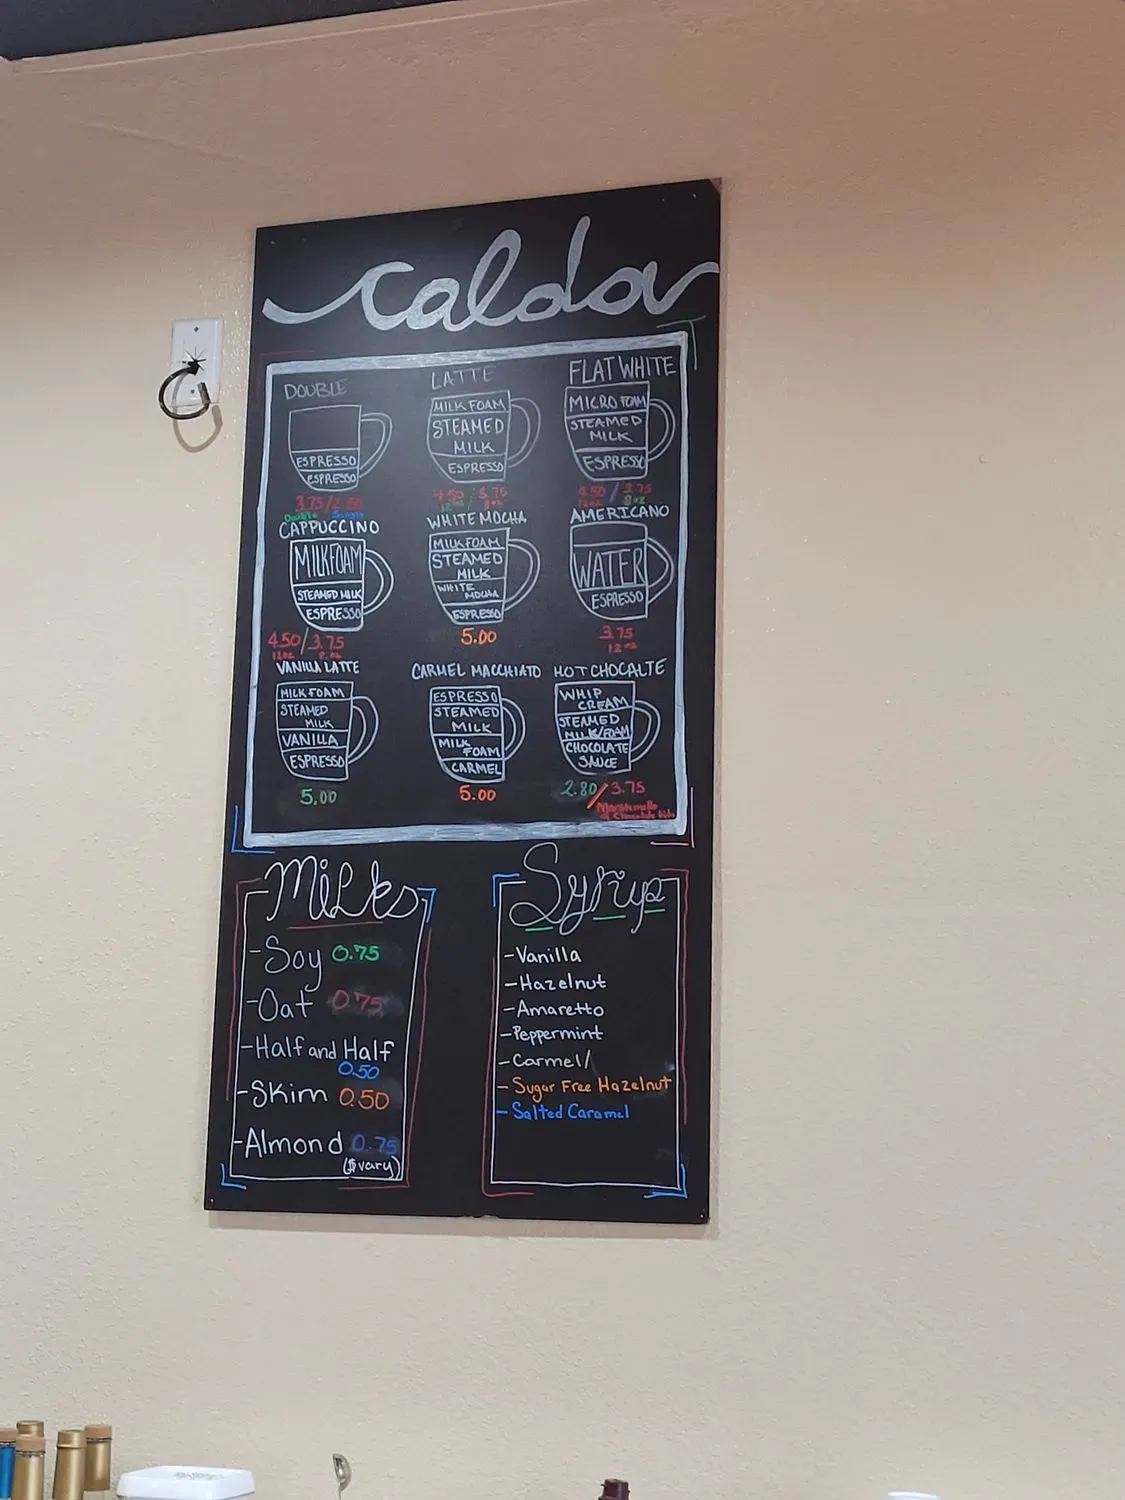 Caldo
DOUBLE
ESPRESSO
ESPRESSO
3.75/2.50
Double Single
LATTE
MILK FOAM
STEAMED
MILK
ESPRESSO
4.50/3.75
12oz 8oz
FLAT WHITE
MICRO FOAM
STEAMED
MILK
ESPRESSO
4.50/3.75
12oz 8oz
CAPPUCCINO
MILKFOAM
STEAMED MILK
ESPRESSO
4.50/3.75
12oz 8oz
WHITE MOCHA
MILK FOAM
STEAMED
MILK
WHITE
MOCHA
ESPRESSO
5.00
AMERICANO
WATER
ESPRESSO
3.75
12oz
VANILLA LATTE
MILK FOAM
STEAMED
MILK
VANILLA
ESPRESSO
5.00
CARMEL MACCHIATO
ESPRESSO
STEAMED
MILK
MILK
FOAM
CARMEL
5.00
HOT CHOCALTE
WHIP
CREAM
STEAMED
MILK/FOAM
CHOCOLATE
SAUCE
2.80/3.75
& Chocolate
Milks
-Soy 0.75
-Oat 0.75
-Half and Half
0.50
-Skim 0.50
-Almond 0.75
($vary)
Syrup
-Vanilla
-Hazelnut
-Amaretto
-Peppermint
-Carmel/
-Sugar Free Hazelnut
-Salted Caramel